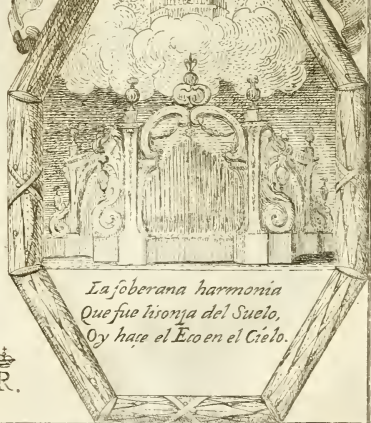 La soberana harmonia
Que fue lisonja del Suelo,
Oy haçe el Eco en el Cielo.
R.